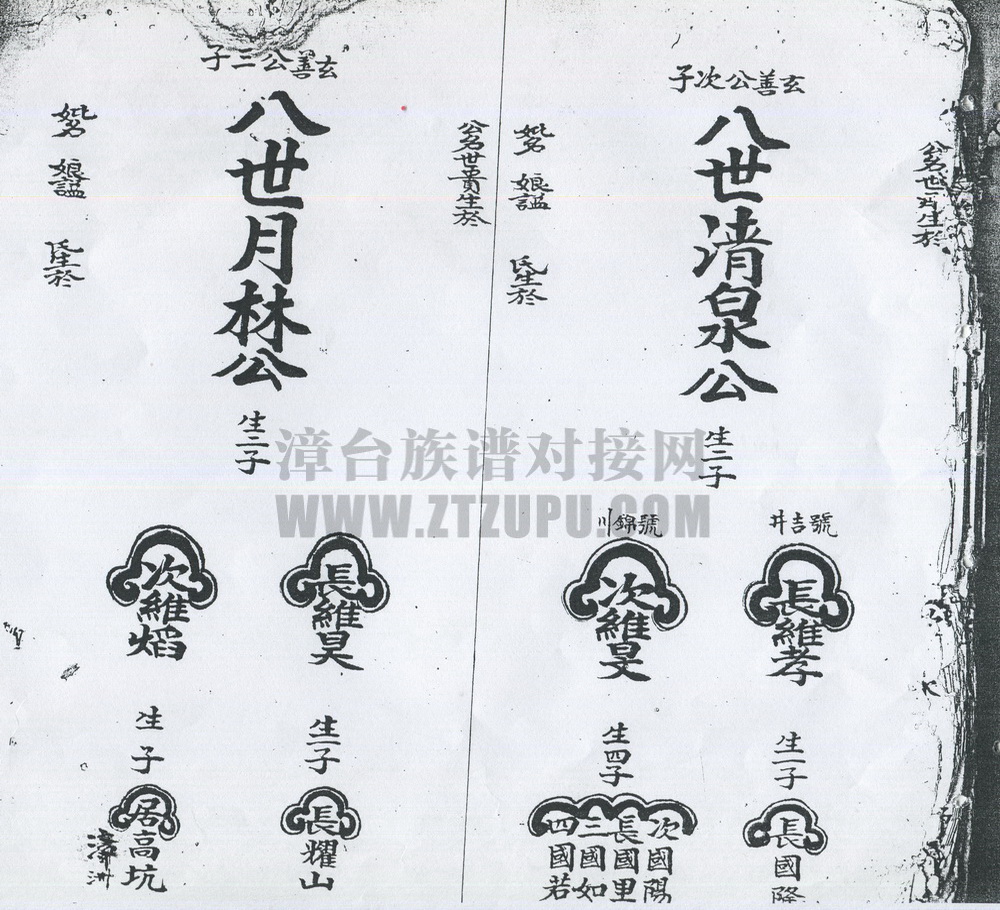 玄善公次子
公名世
生於
八世清泉公
妣名
娘謚
氏生於
生二子
號吉井
長維孝
生一子
長國降
號錦川
次維旻
生四子
次國陽
長國里
三國如
四國若
玄善公三子
公名世貴生於
八世月林公
妣名
娘謚
氏生於
生二子
長維昊
生一子
長耀山
次維熖
生
子
居高坑
漳洲
漳台族谱对接网
WWW.ZTZUPU.COM